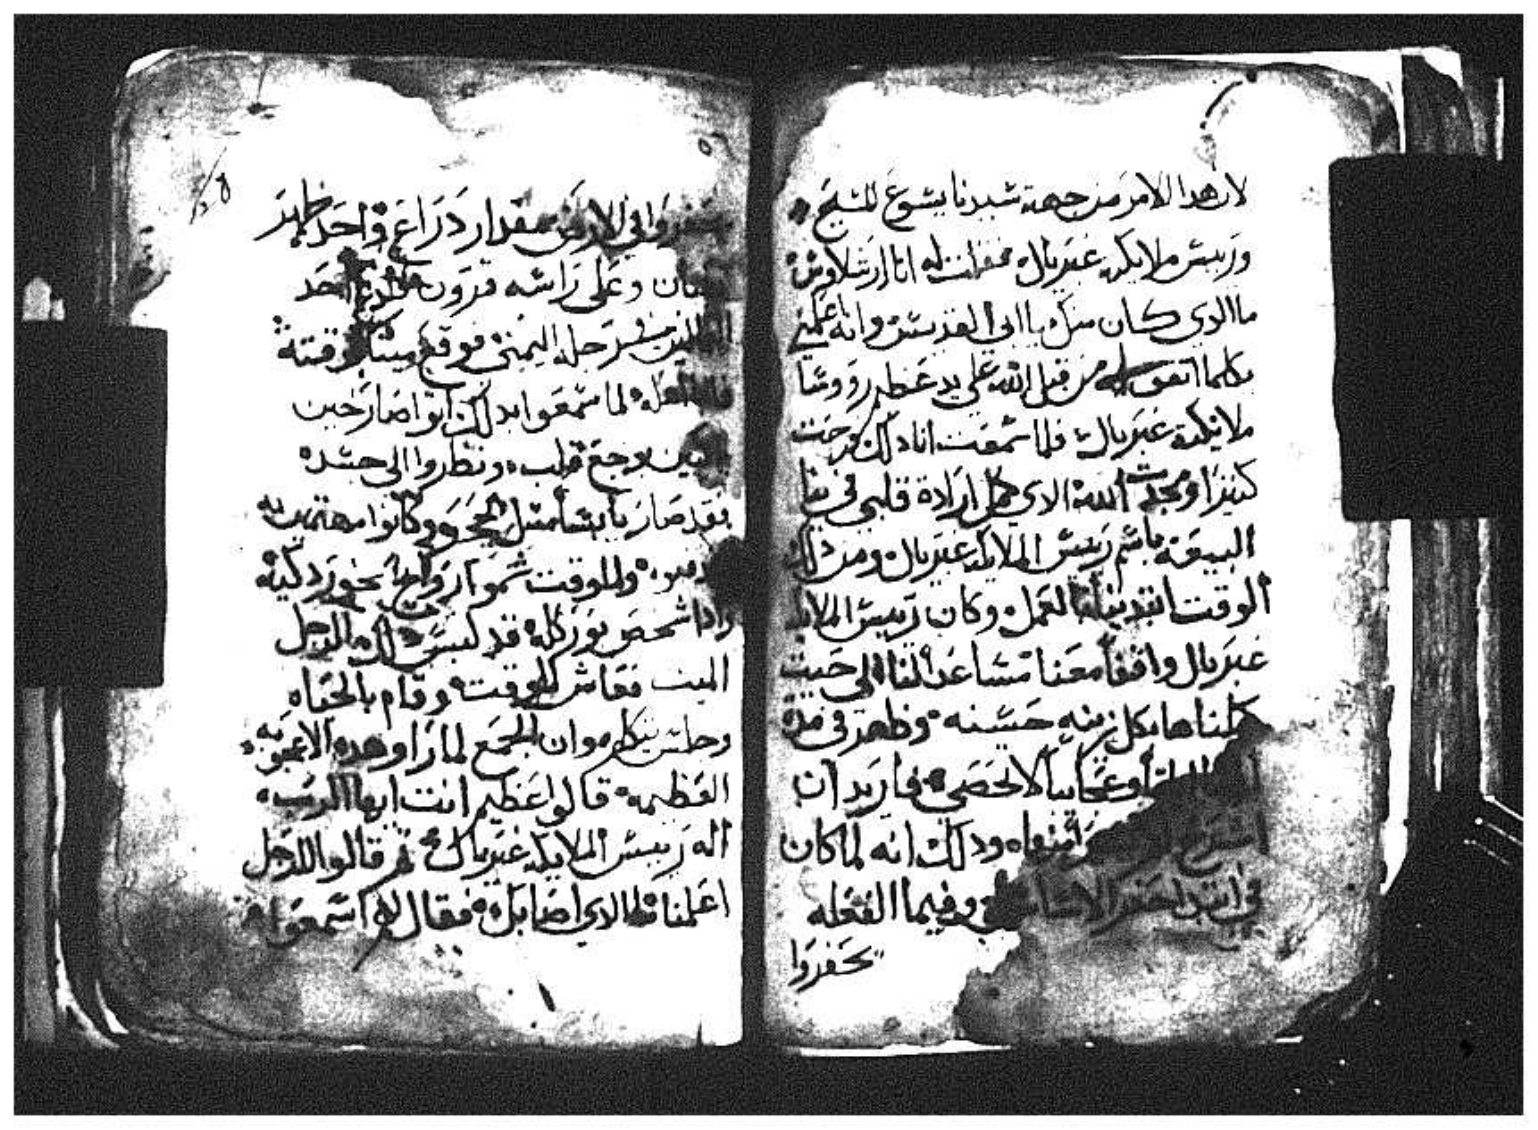 لان هدا الامر من جهة سيدنا يسوع المسيح
ورييس ملايكته غبريال فقلت له انا ارشلاوس
ما الدي كان منك يا ابي القديس وانه اعلمني
بكلما اتفق له من قبل الله على يد عظيم رووسا
ملايكته غبريال فلما سمعت انا دلك فرحت
كتيرا ومجدت الله الدي كمل ارادة قلبي في بنا
البيعة باسم رييس الملايكه غبريال ومن دلك
الوقت ابتدينا العمل وكان رييس الملايكه
غبريال واقفا معنا مساعدا لنا الي حيت
كملناها بكل زينه حسنه وظهر في مدة
وعجايبا لا تحصي فاريد ان
اشرح ودلك انه لما كان
في ابتدا حفر الاساسات وفيما الفعله
يحفروا
حفروا في الارض مقدار دراع واحد ظهر
تعبان وعلى راسه قرون احد
الفاعلين من رجله اليمني فوقع ميتا لوقته
الفعله لما سمعوا بدلك اتوا صارخين
بوجع قلب ونظروا الى جسده
فقد صار يابسا متل الحجر وكانوا مهتمين به
وللوقت شموا روايح بخور دكيه
وادا شخص نور كله قد لمس الرجل
الميت فعاش للوقت وقام بالحياه
وجلس يتكلم وان الجمع لما راوا هده الاعجوبه
العظيمه قالوا عظيم انت ايها الرب
اله رييس الملايكه غبريال تم قالوا للرجل
اعلمنا ما الدي اصابك فقال لهم اسمعوا